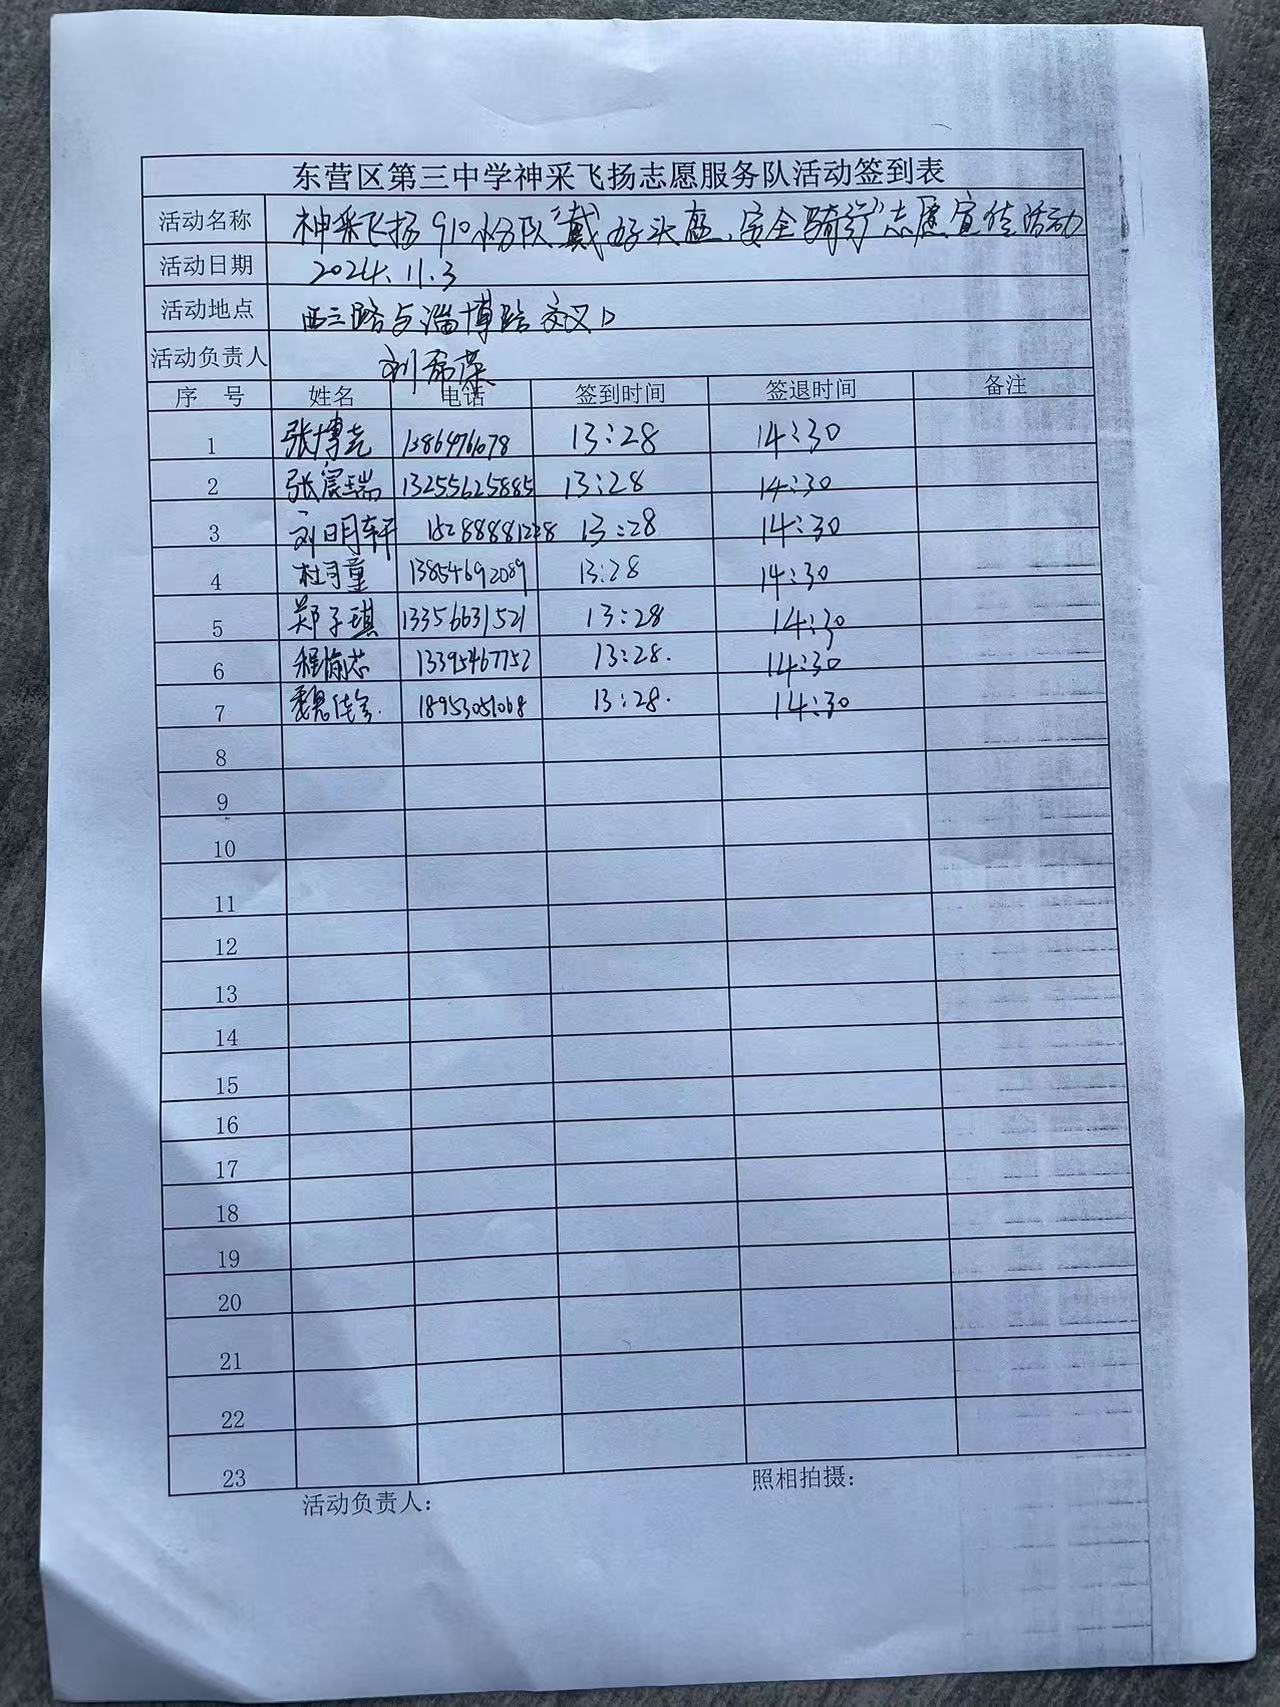 东营区第三中学神采飞扬志愿服务队活动签到表
活动名称 神采飞扬910小分队"戴好头盔、安全骑行"志愿宣传活动
活动日期 2024.11.3
活动地点 西三路与淄博路交叉口
活动负责人 刘希荣
序 号 姓名 电话 签到时间 签退时间 备注
1 张博尧 13:28 14:30
2 张宸瑞 13255625885 13:28 14:30
3 刘明轩 13:28 14:30
4 杜雨童 13854692089 13:28 14:30
5 郑子琪 13356631521 13:28 14:30
6 程愉芯 13395467752 13:28. 14:30
7 魏佳 18953051068 13:28. 14:30
8
9
10
11
12
13
14
15
16
17
18
19
20
21
22
23
活动负责人： 照相拍摄：